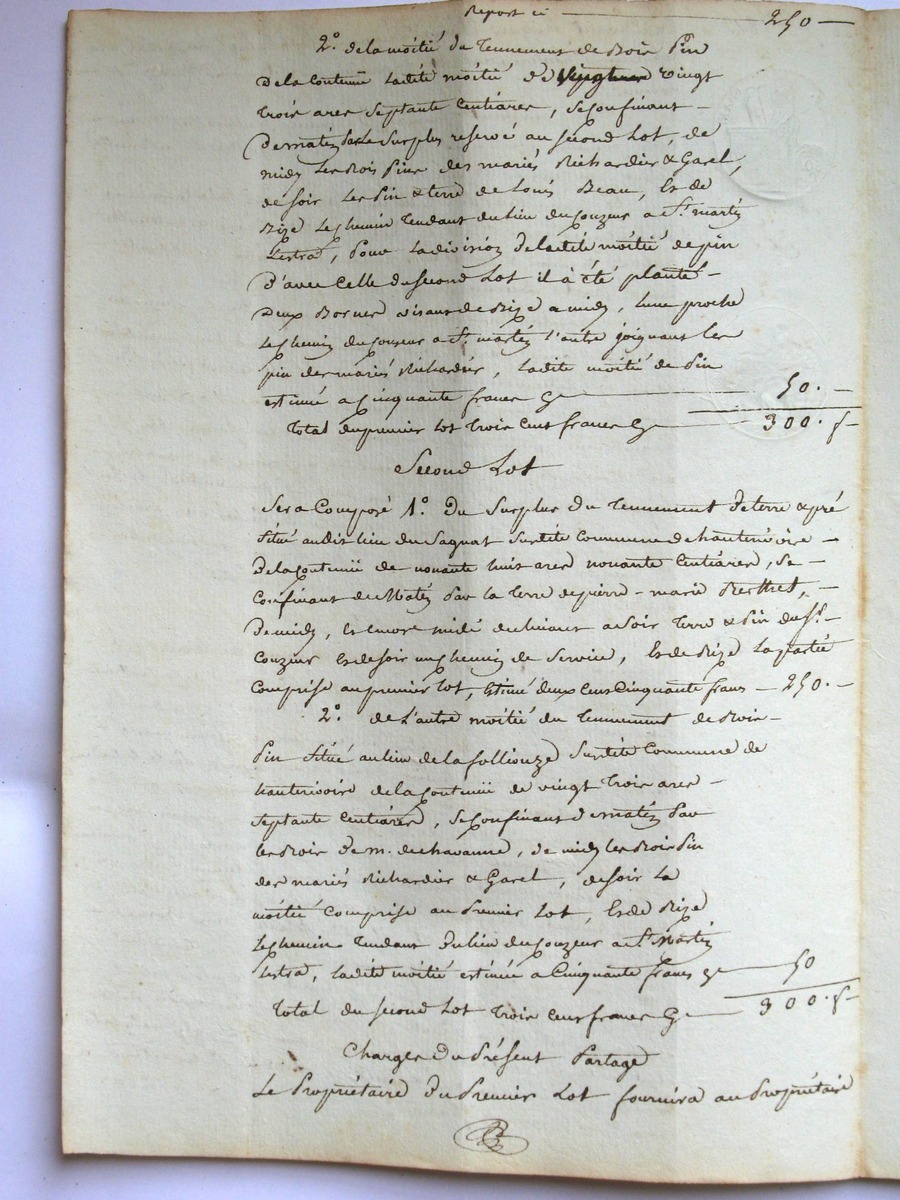 Report ci — 250 —
2.° de la moitié du tennement de Bois Pin
de la contenue ladite moitié de vingt
trois ares septante centiares, se confinant —
de matin par le surplus reservé au second Lot, de
midy les Bois Pins des mariés Richardier & Garel,
de soir les Pin & terre de Louis Beau, & de
Bize le chemin tendant du lieu du Couzeur a St. martin
Lestrad, pour la division de ladite moitié de pin
d'avec celle du second Lot il à été planté —
deux Bornes visant de Bize a midy, l'une proche
le chemin du couzeur a St. martin l'autre joignant les
pin des mariés Richardier, ladite moitié de Pin
estimé a Cinquante francs Cy — 50. —
Total du premier Lot trois cent francs Cy — 300. f —
Second Lot
Sera Composé 1.° du surplus du tennement de terre & pré
situé au dit lieu du Sagnat susdite Commune de hauterivoire —
de la contenue de nonante huit ares nonante centiares, se —
confinant de matin par la terre de pierre - marie Berthet, —
de midy, & encore midi declinant a soir terre & Pin du Sr. —
Couzeur & de soir un chemin de service, & de Bize la partie
comprise au premier lot, estimé deux cent Cinquante frans — 250. —
2.° de l'autre moitié du tennement de Bois —
Pin situé au lieu de la follionze susdite Commune de
hauterivoire de la contenue de vingt trois ares —
septante centiares, se confinant de matin par
les Bois de m. de chavanne, de midy les Bois Pin
des mariés Richardier & Garel, de soir la
moitié comprise au Premier Lot, & de Bize
le chemin tendant du lieu du Couzeur a St. Martin
Lestra, ladite moitié estimée a Cinquante francs Cy — 50
Total du second Lot trois cent francs Cy — 300. f —
Charges du Présent Partage
Le Propriétaire du Premier Lot fournira au Propriétaire